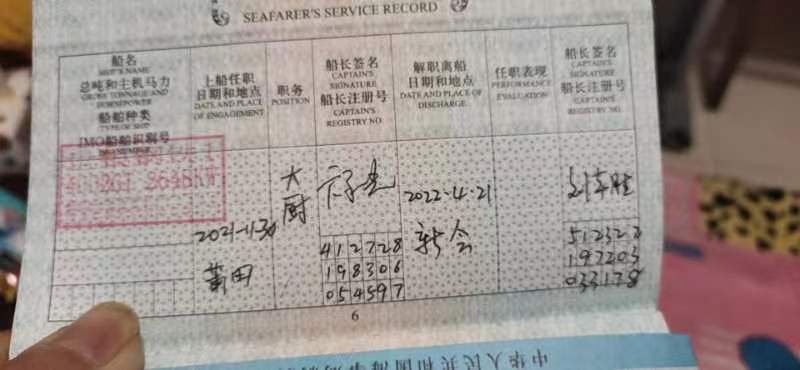 SEAFARER'S SERVICE RECORD
船名
SHIP'S NAME
总吨和主机马力
GROSS TONNAGE AND
HORSEPOWER
船舶种类
TYPE OF SHIP
IMO船舶识别号
上船任职
日期和地点
DATE AND PLACE
OF ENGAGEMENT
职务
POSITION
船长签名
CAPTAIN'S
SIGNATURE
船长注册号
CAPTAIN'S
REGISTRY NO
解职离船
日期和地点
DATE AND PLACE OF
DISCHARGE
任职表现
PERFORMANCE
EVALUATION
船长签名
CAPTAIN'S
SIGNATURE
船长注册号
CAPTAIN'S
REGISTRY NO.
2021-11-30
莆田
大
厨
412728
198306
054597
2022-4-21
新会
512322
197203
033178
6
中华人民共和国海事局